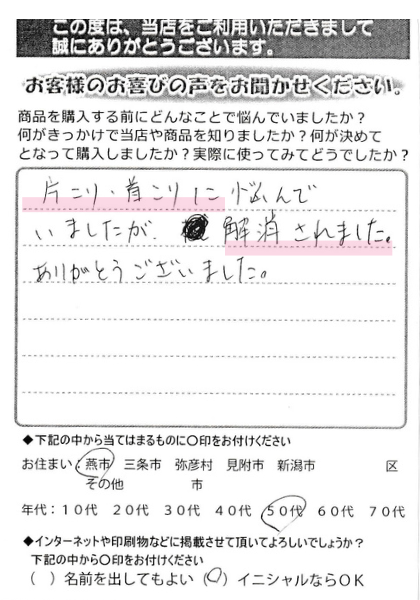 この度は、当店をご利用いただきまして
誠にありがとうございます。
お客様のお喜びの声をお聞かせください。
商品を購入する前にどんなことで悩んでいましたか?
何がきっかけで当店や商品を知りましたか?何が決めて
となって購入しましたか?実際に使ってみてどうでしたか?
片こり・首こりに悩んで
いましたが、解消されました。
ありがとうございました。
◆下記の中から当てはまるものに〇印をお付けください
お住まい:燕市 三条市 弥彦村 見附市 新潟市 区
その他 市
年代:10代 20代 30代 40代 50代 60代 70代
◆インターネットや印刷物などに掲載させて頂いてよろしいでしょうか?
下記の中から〇印をお付けください
( )名前を出してもよい(〇)イニシャルならOK